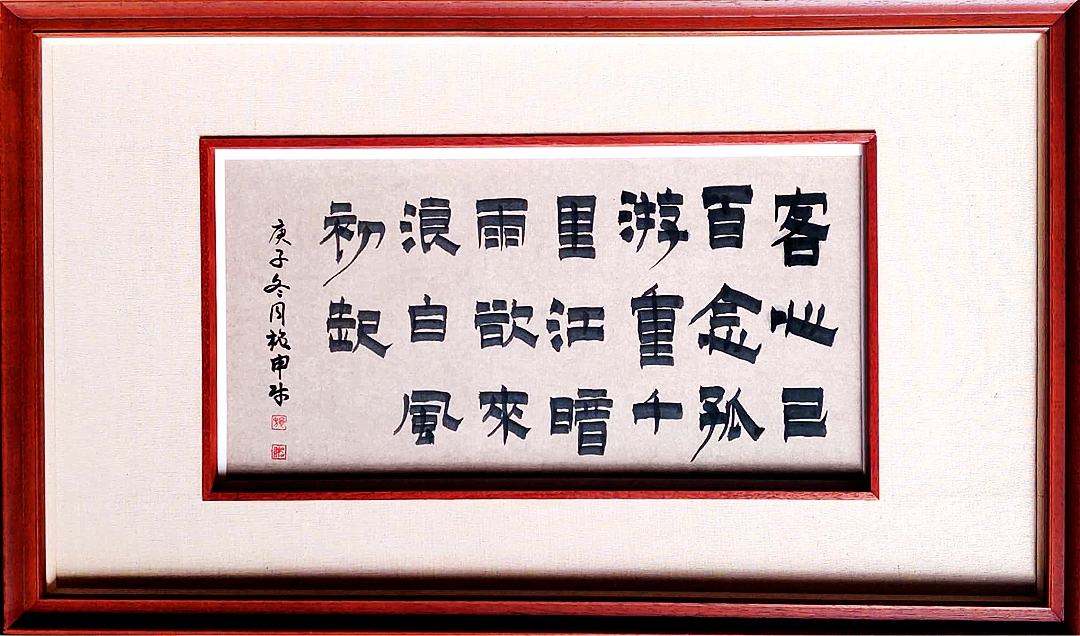 客心已
百念孤
游重千
里江暗
雨欲來
浪白風
初起
庚子冬月 申书